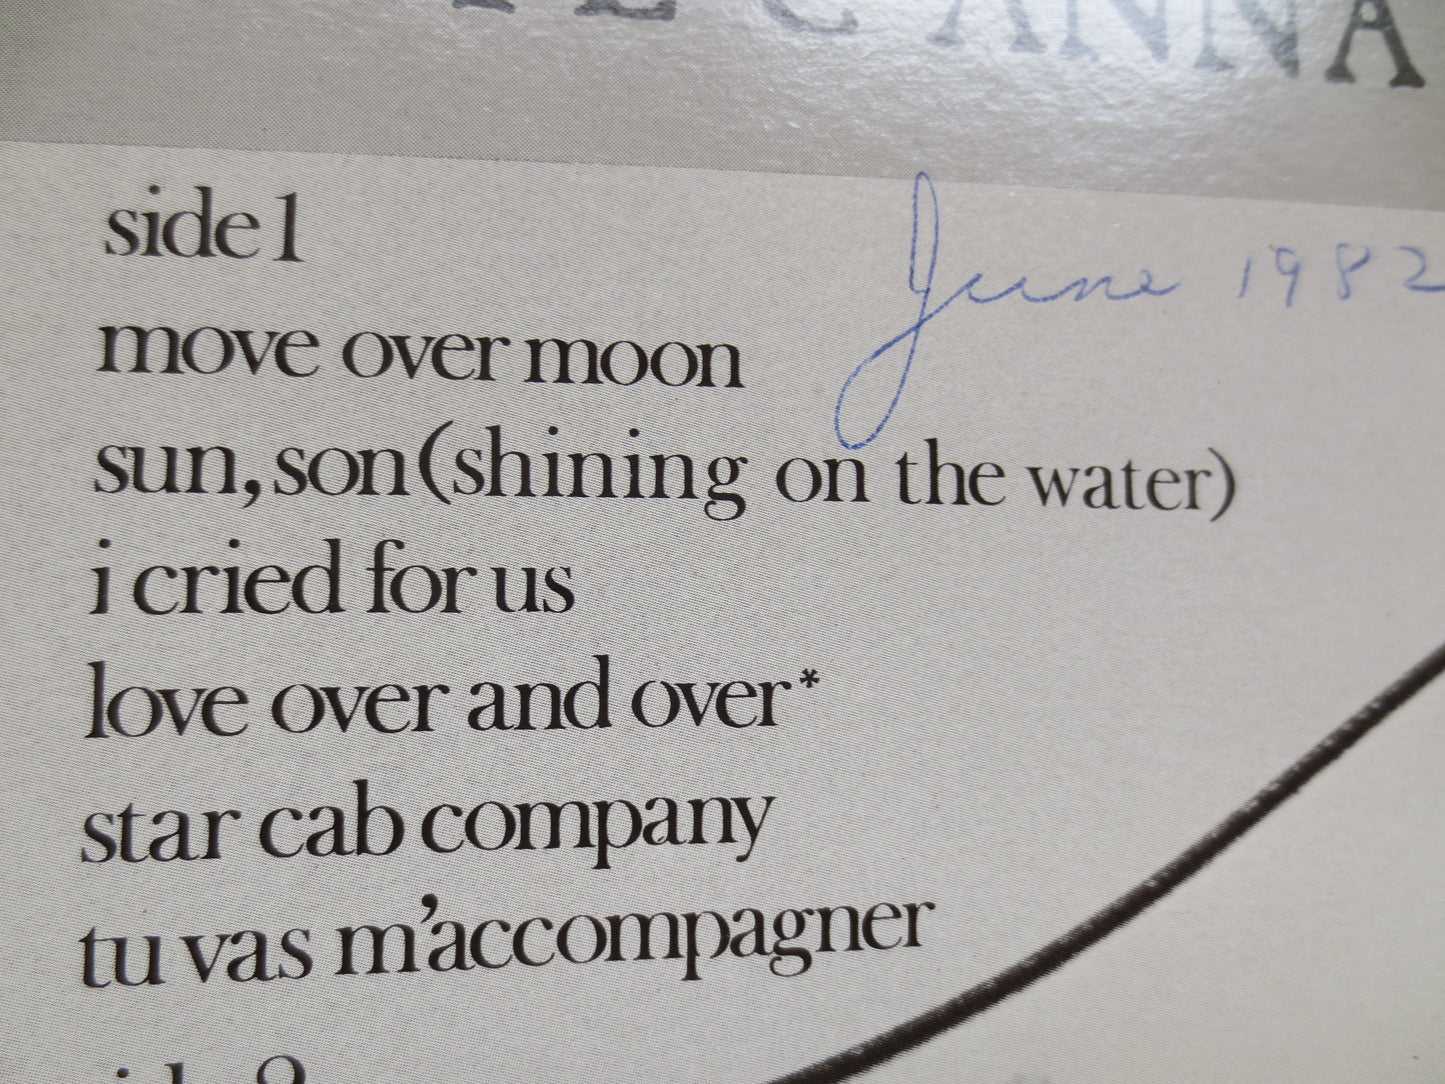 ANNA
side 1
June 1982
move over moon
sun, son (shining on the water)
i cried for us
love over and over*
star cab company
tu vas m'accompagner